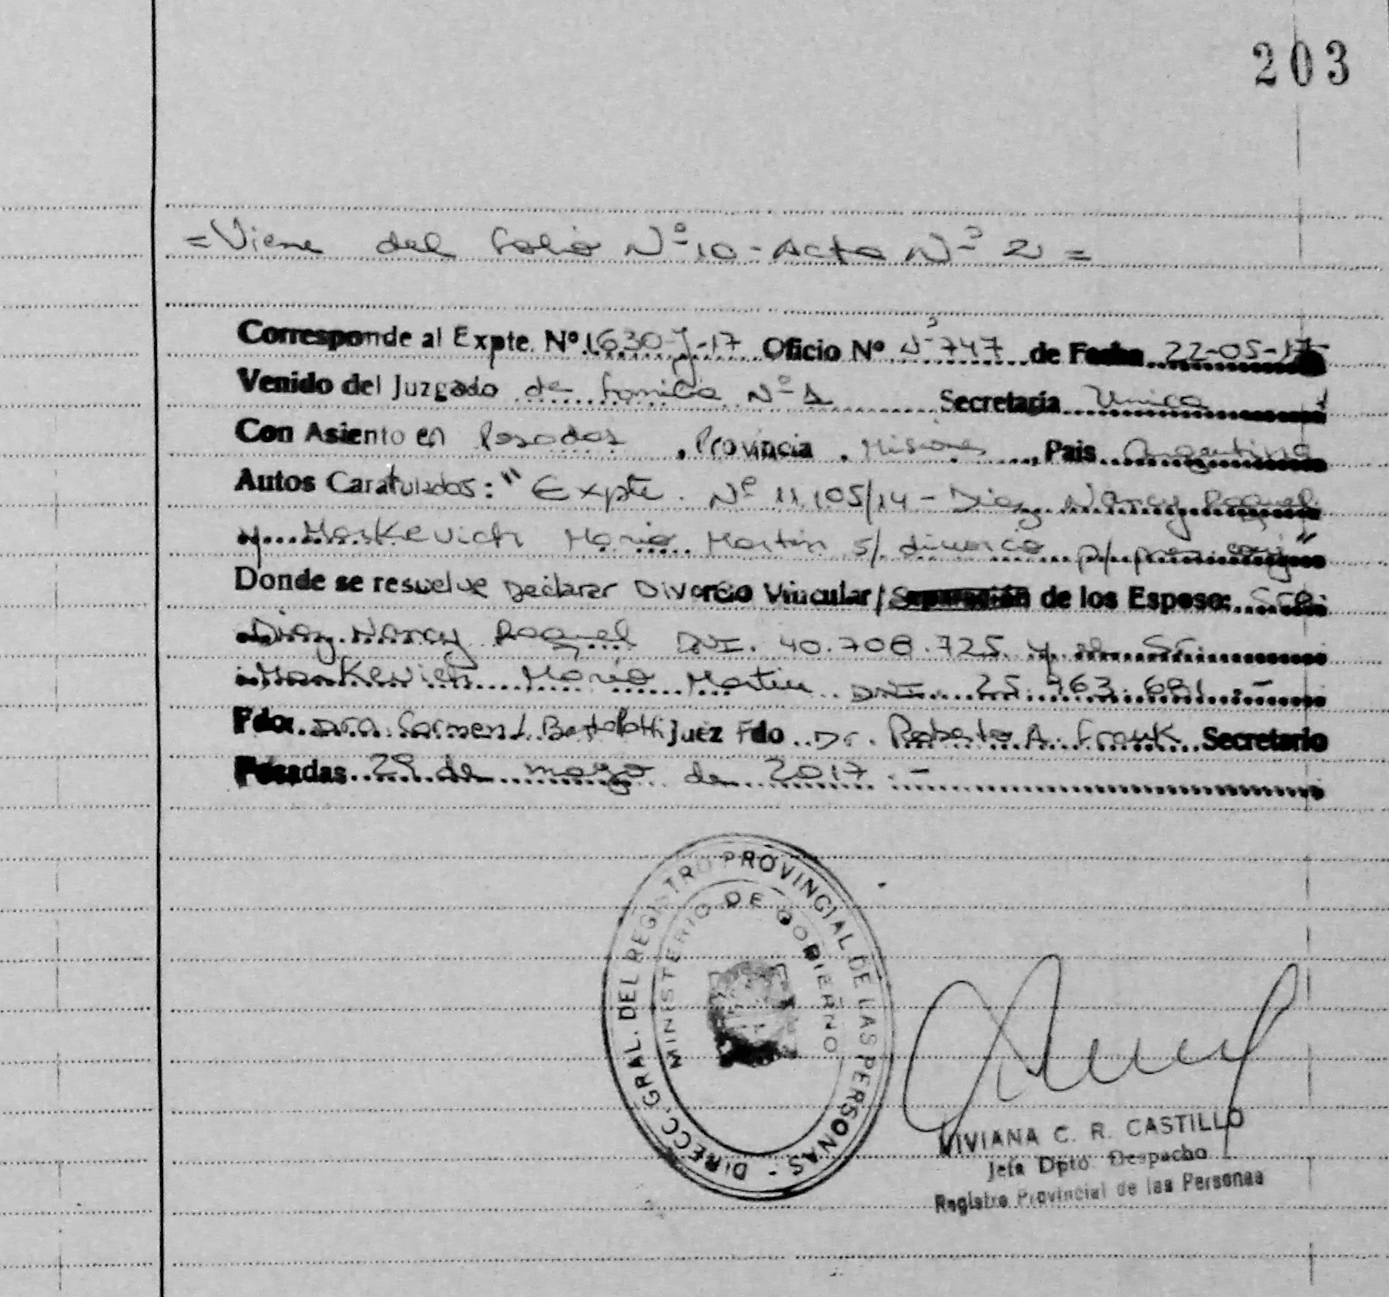 203
= Viene del folio Nº 10 - Acta Nº 2 =
Corresponde al Expte. Nº 1630-J-17 Oficio Nº Nº 747 de Fecha 22-05-17-
Venido del Juzgado de Familia Nº 1 Secretaria Unica
Con Asiento en Posadas, Provincia, Misiones, Pais Argentina
Autos Caratulados: "Expte. Nº 11.105/14 - Diaz Nancy Raquel
y Markevich Mario Martin s/ divorcio p/ pres. conj"
Donde se resuelve Declarar Divorcio Vincular/Separación de los Esposo: Sra.
Diaz Nancy Raquel DNI. 40.708.725 y el Sr.
Markevich Mario Martin DNI. 25.963.681.-
Fdo: Dra. Carmen Bertolotti Juez Fdo Dr. Roberto A. Frank Secretario
Posadas 29 de mayo de 2017.-
DIRECC. GRAL. DEL REGISTRO PROVINCIAL DE LAS PERSONAS -
MINISTERIO DE GOBIERNO
VIVIANA C. R. CASTILLO
Jefa Dpto. Despacho
Registro Provincial de las Personas